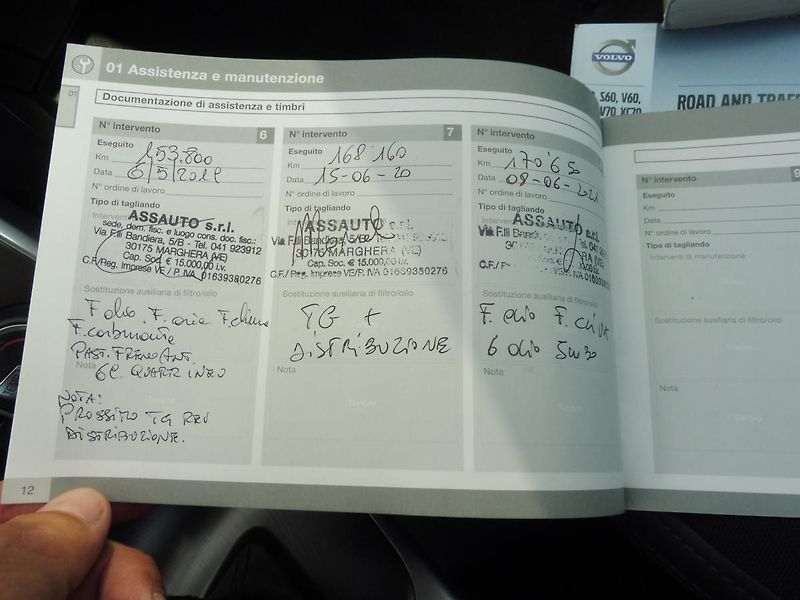 01 Assistenza e manutenzione
01
Documentazione di assistenza e timbri
N° intervento 6
Eseguito
Km 153.800
Data 6/5/2019
N° ordine di lavoro
Tipo di tagliando
ASSAUTO s.r.l.
sede, dom. fisc. e luogo cons. doc. fisc.:
Via F.lli Bandiera, 5/B - Tel. 041 923912
30175 MARGHERA (VE)
Cap. Soc. € 15.000,00 i.v.
C.F./Reg. Imprese VE/P. IVA 01639380276
Sostituzione ausiliaria di filtro/olio
F olio F. aria F. clima
F. carburante
PAST. FRENO ANT.
Nota
NOTA:
PROSSIMO TG REV
DISTRIBUZIONE.
12
N° intervento 7
Eseguito
Km 168160
Data 15-06-20
N° ordine di lavoro
Tipo di tagliando
ASSAUTO s.r.l.
Via F.lli Bandiera, 5/B
30175 MARGHERA (VE)
Cap. Soc. € 15.000,00 i.v.
C.F./Reg. Imprese VE/P. IVA 01639380276
Sostituzione ausiliaria di filtro/olio
TG +
DISTRIBUZIONE
Nota
N° intervento
Eseguito
Km 170650
Data 08-06-2021
N° ordine di lavoro
Tipo di tagliando
ASSAUTO s.r.l.
Via F.lli
Sostituzione ausiliaria di filtro/olio
F. olio
6 olio 5W30
Nota
N° intervento 9
Eseguito
Km
Data
N° ordine di lavoro
Tipo di tagliando
Interventi di manutenzione
Sostituzione ausiliaria di filtro/olio
Timbro
Nota
Timbro
VOLVO
S60, V60,
V70 XC70
ROAD AND